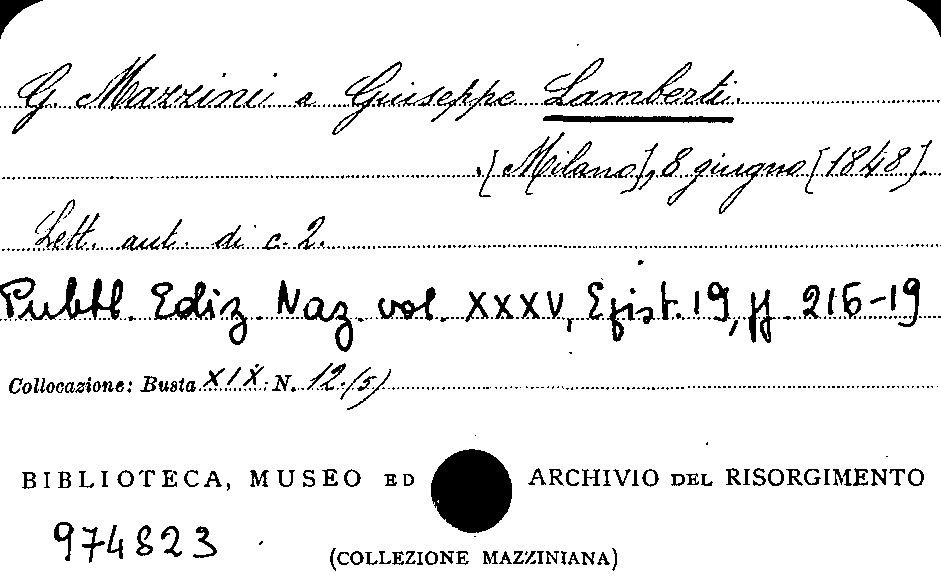 G. Mazzini a Giuseppe Lamberti.
[Milano], 8 giugno [1848].
Lett. aut. di c. 2.
Pubbl. Ediz. Naz. vol. XXXV, Epist. 19, pp. 215-19
Collocazione: Busta XIX. N. 12.(5)
BIBLIOTECA, MUSEO ED ARCHIVIO DEL RISORGIMENTO
974823
(COLLEZIONE MAZZINIANA)